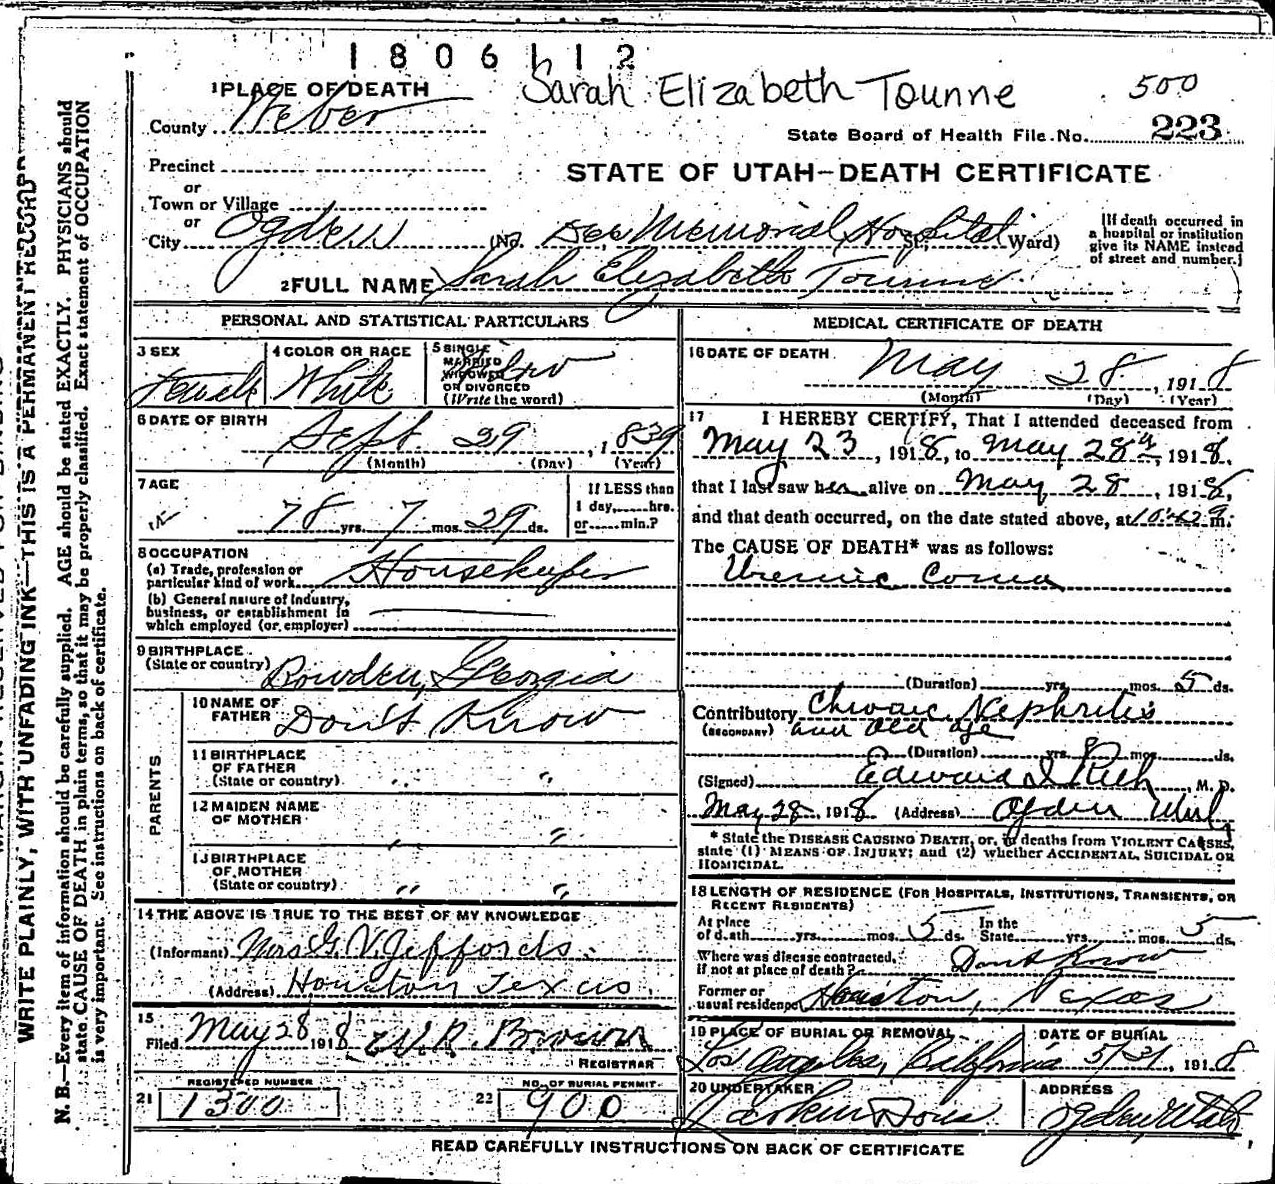 1806112
Sarah Elizabeth Tounne 500
1 PLACE OF DEATH
County Weber
State Board of Health File No. 223
Precinct
STATE OF UTAH—DEATH CERTIFICATE
or
Town or Village
or
City Ogden (No. Dee Memorial Hospital St.; Ward)
[If death occurred in
a hospital or institution
give its NAME instead
of street and number.]
2 FULL NAME Sarah Elizabeth Tounne
PERSONAL AND STATISTICAL PARTICULARS
3 SEX Female
4 COLOR OR RACE White
5 SINGLE
MARRIED
WIDOWED
OR DIVORCED
(Write the word)
6 DATE OF BIRTH
Sept 29, 1839
(Month) (Day) (Year)
7 AGE
78 yrs. 7 mos. 29 ds.
If LESS than
1 day,......hrs.
or......min.?
8 OCCUPATION
(a) Trade, profession or
particular kind of work Housekeeper
(b) General nature of industry,
business, or establishment in
which employed (or employer)
9 BIRTHPLACE
(State or country) Bowden, Georgia
PARENTS
10 NAME OF
FATHER Don't Know
11 BIRTHPLACE
OF FATHER
(State or country) " "
12 MAIDEN NAME
OF MOTHER " "
13 BIRTHPLACE
OF MOTHER
(State or country) " "
14 THE ABOVE IS TRUE TO THE BEST OF MY KNOWLEDGE
(Informant) Mrs G. V. Jeffords
(Address) Houston Texas
15
Filed May 28 1918 W. R. Brown
REGISTRAR
REGISTERED NUMBER
21 1300
NO. OF BURIAL PERMIT
22 900
MEDICAL CERTIFICATE OF DEATH
16 DATE OF DEATH
May 28, 1918
(Month) (Day) (Year)
17 I HEREBY CERTIFY, That I attended deceased from
May 23, 1918, to May 28, 1918,
that I last saw her alive on May 28, 1918,
and that death occurred, on the date stated above, at m.
The CAUSE OF DEATH* was as follows:
Uremic Coma
(Duration) yrs. mos. 5 ds.
Contributory Chronic Nephritis
(SECONDARY) and Old age
(Duration) yrs. mos. ds.
(Signed) Edward I Rich, M. D.
May 28, 1918 (Address) Ogden Utah
* State the DISEASE CAUSING DEATH, or, in deaths from VIOLENT CAUSES,
state (1) MEANS OF INJURY; and (2) whether ACCIDENTAL, SUICIDAL OR
HOMICIDAL.
18 LENGTH OF RESIDENCE (FOR HOSPITALS, INSTITUTIONS, TRANSIENTS, OR
RECENT RESIDENTS)
At place
of death yrs. mos. 5 ds. In the
State yrs. mos. 5 ds.
Where was disease contracted,
if not at place of death? Dont Know
Former or
usual residence Houston, Texas
19 PLACE OF BURIAL OR REMOVAL
Los Angeles, California
DATE OF BURIAL
5/31, 1918
20 UNDERTAKER
Larkin & Sons
ADDRESS
Ogden, Utah
READ CAREFULLY INSTRUCTIONS ON BACK OF CERTIFICATE
WRITE PLAINLY, WITH UNFADING INK—THIS IS A PERMANENT RECORD
N. B.—Every item of information should be carefully supplied. AGE should be stated EXACTLY. PHYSICIANS should
state CAUSE OF DEATH in plain terms, so that it may be properly classified. Exact statement of OCCUPATION
is very important. See instructions on back of certificate.